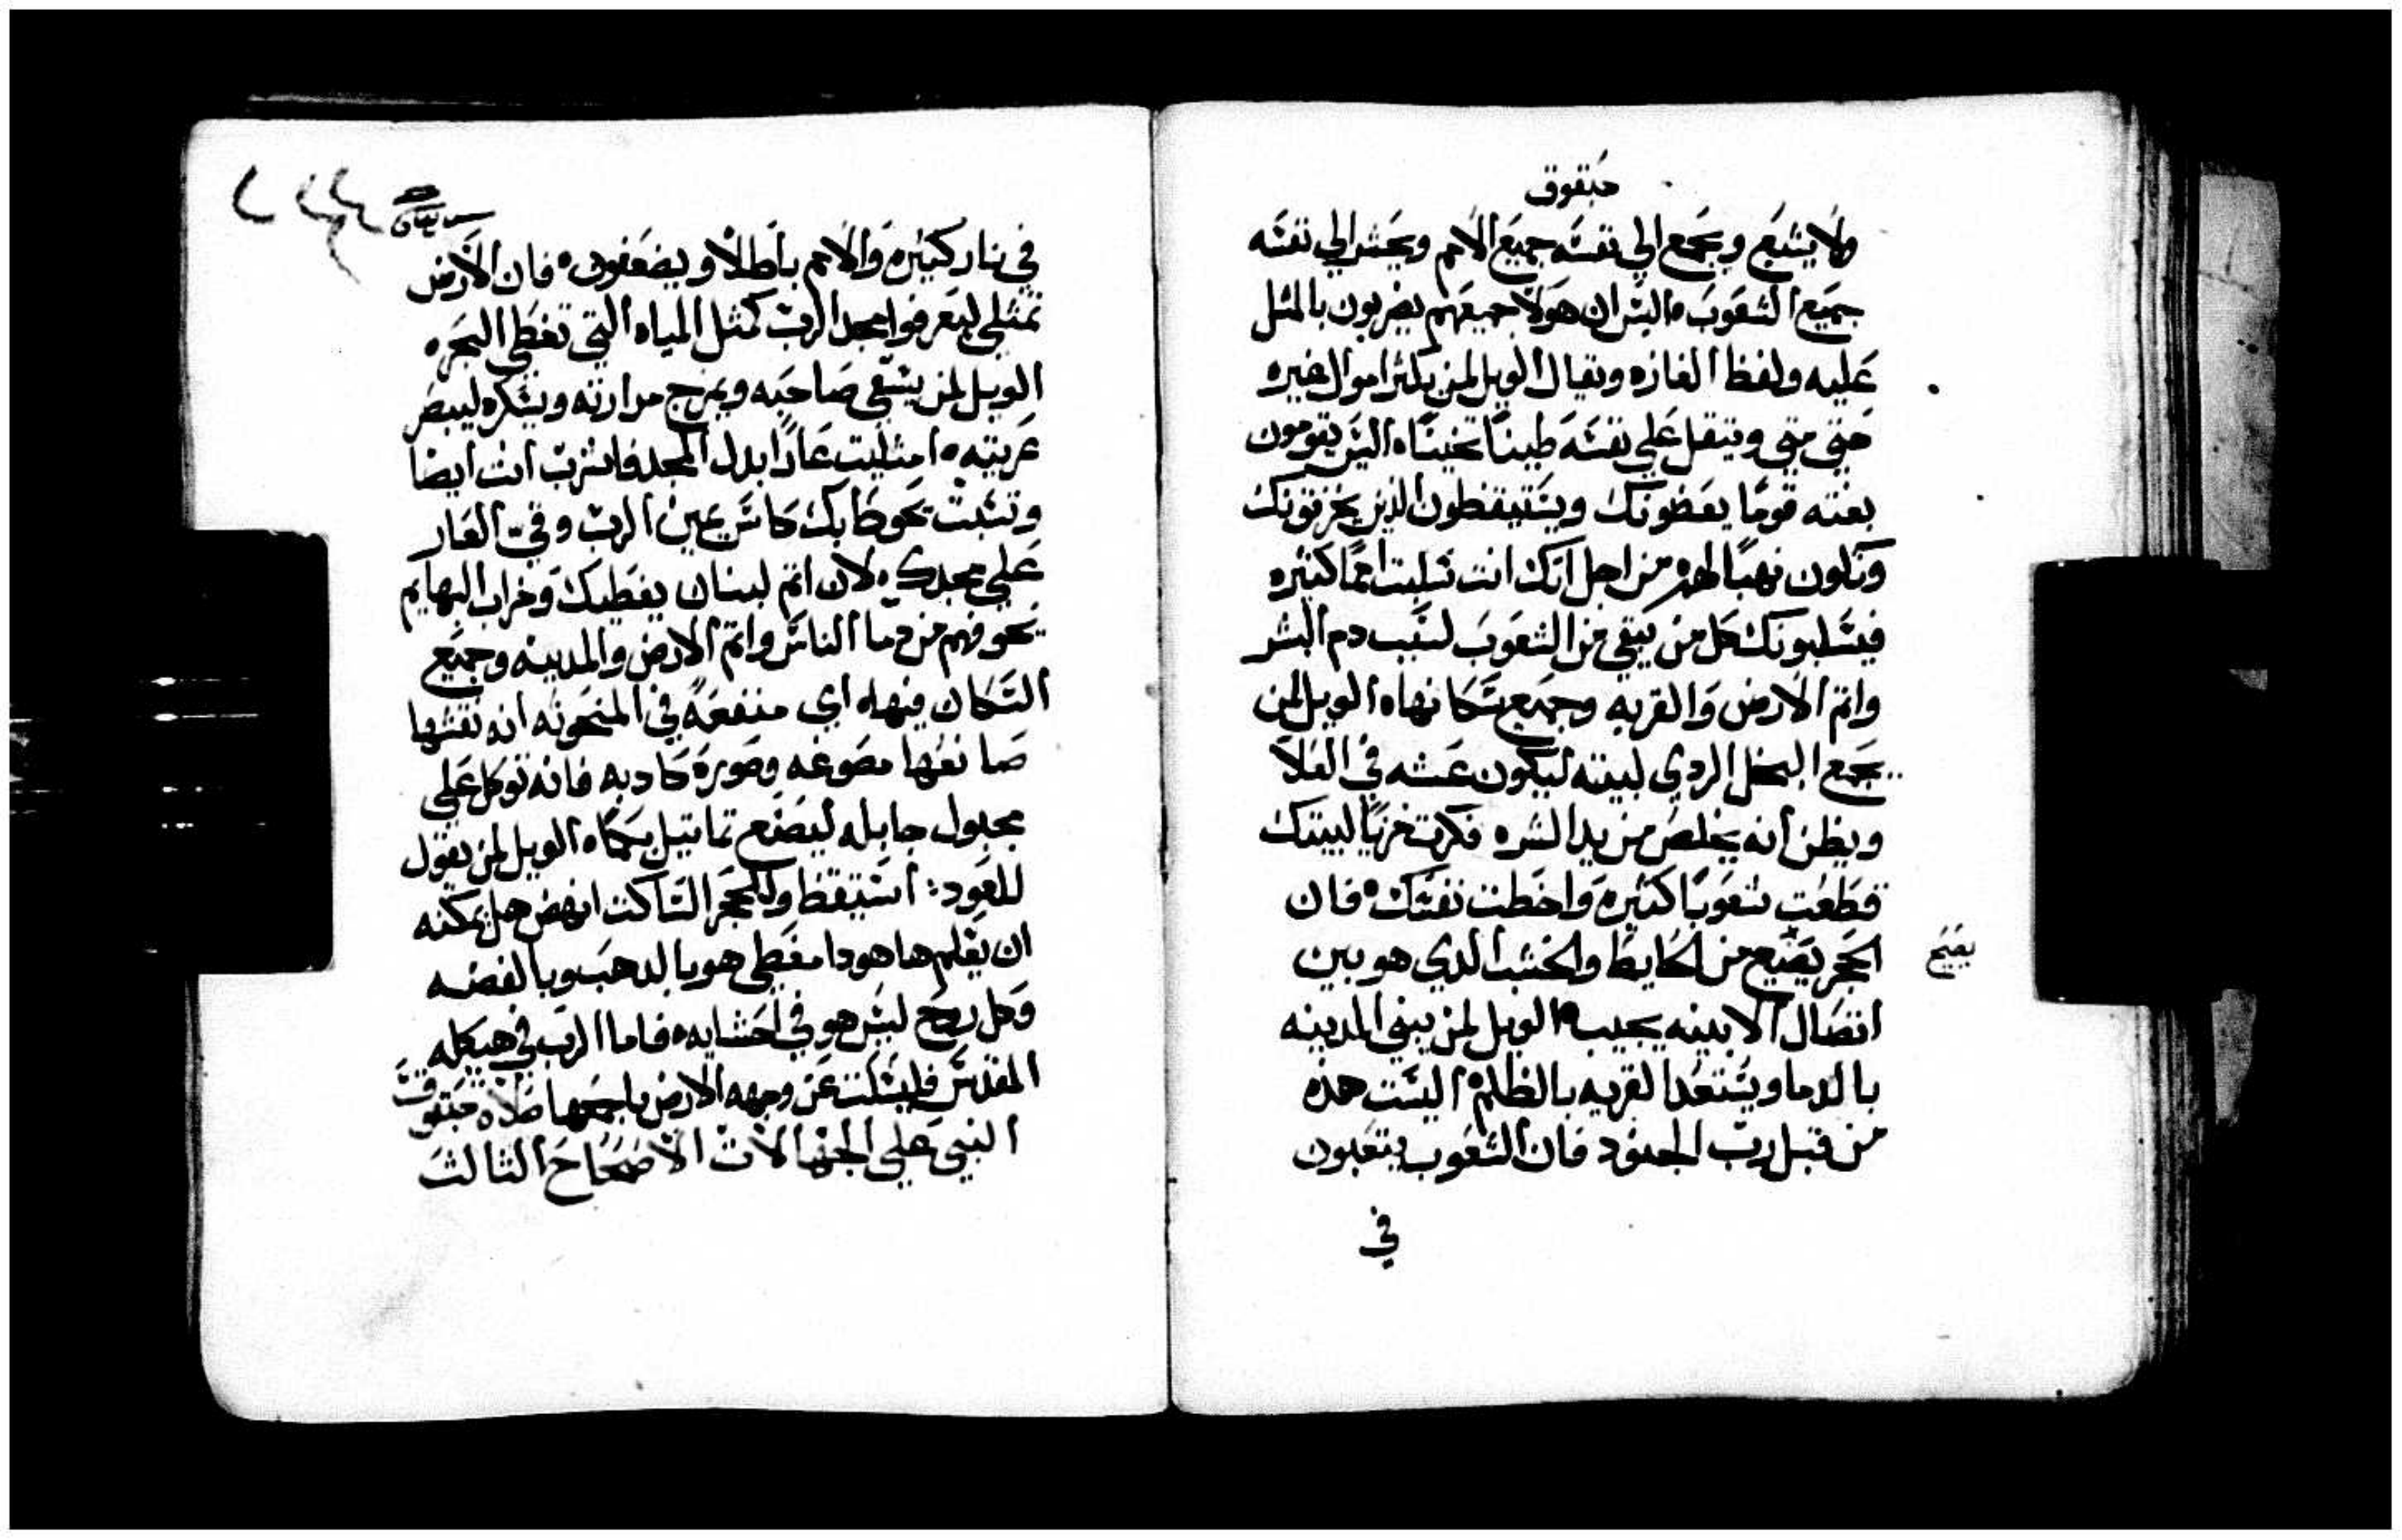 حبقوق
ولا يشبع ويجمع الي نفسه جميع الامم ويحشر الي نفسه
جميع الشعوب ه اليس ان هولا جميعهم يضربون بالمثل
عليه ولفظ الغازه ويقال الويل لمن يكثر اموال غيره
حتي متي ويثقل علي نفسه طيناً تخيناً ه اليس يقومون
بغته قوماً يعضونك ويستيقظون الذين يخزقونك
وتكون نهباً لهم من اجل انك انت سلبت امماً كثيره
فيسلبونك كل من يبقي من الشعوب لسبب دم البشر
واتم الارض والقريه وجميع سكانها ه الويل لمن
يجمع البخل الردي لبيته ليكون عشه في العلا
ويظن انه يخلص من يد الشره فكرت خزياً لبيتك
قطعت شعوباً كثيره واخطت نفسك ه فان
الحجر يصيح من الحايط والخشب الدي هو بين
يضيح
اتصال الابنيه يجيب ه الويل لمن يبني المدينه
بالدما ويستعد القريه بالظلم اليست هذه
من قبل رب الجنود فان الشعوب يتعبون
في
في نار كثيره والامم باطلاً ويضعفون ه فان الارض
تمتلي ليعرفوا مجد الرب كمثل المياه التي تغطي البحر ه
الويل لمن يسقي صاحبه ويمزج مرارته ويسكره ليبصر
عريته ه امتليت عاراً بدل المجد فاشرب انت ايضا
وتثبت تحوط بك كاس يمين الرب وقي العار
علي مجدك ه لان اتم لبنان يغطيك وخراب البهايم
يخوفهم من دما الناس واتم الارض والمدينه وجميع
السكان فيها ه اي منفعه في المنحوته انه نقشها
صانعها مصوغه وصوره كادبه فانه توكل علي
مجبول جابله ليصنع تماتيل بكماً ه الويل لمن يقول
للعود: استيقظ وللحجر الساكت انهض هل يمكنه
ان يعلم ها هودا مغطي هو بالدهب وبالفضه
وكل روح ليس هو في احشايه ه فاما الرب في هيكله
المقدس فليسكت عن وجهه الارض باجمعها صلاه حبقوق
النبي علي الجهالات الاصحاح الثالث